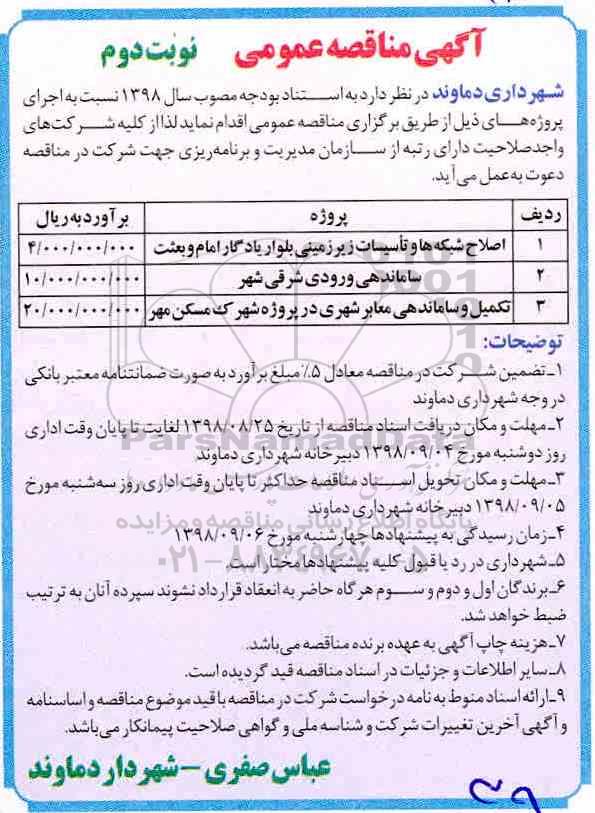 آگهی مناقصه عمومی نوبت دوم
شهرداری دماوند در نظر دارد به استناد بودجه مصوب سال ۱۳۹۸ نسبت به اجرای
پروژه‌های ذیل از طریق برگزاری مناقصه عمومی اقدام نماید لذا از کلیه شرکت‌های
واجد صلاحیت دارای رتبه از سازمان مدیریت و برنامه‌ریزی جهت شرکت در مناقصه
دعوت به عمل می‌آید.
ردیف پروژه برآورد به ریال
۱ اصلاح شبکه‌ها و تأسیسات زیرزمینی بلوار یادگار امام و بعثت ۴/۰۰۰/۰۰۰/۰۰۰
۲ ساماندهی ورودی شرقی شهر ۱۰/۰۰۰/۰۰۰/۰۰۰
۳ تکمیل و ساماندهی معابر شهری در پروژه شهرک مسکن مهر ۲۰/۰۰۰/۰۰۰/۰۰۰
توضیحات:
۱ـ تضمین شرکت در مناقصه معادل ۵٪ مبلغ برآورد به صورت ضمانتنامه معتبر بانکی
در وجه شهرداری دماوند
۲ـ مهلت و مکان دریافت اسناد مناقصه از تاریخ ۱۳۹۸/۰۸/۲۵ لغایت تا پایان وقت اداری
روز دوشنبه مورخ ۱۳۹۸/۰۹/۰۴ دبیرخانه شهرداری دماوند
ParsNamadData
۳ـ مهلت و مکان تحویل اسناد مناقصه حداکثر تا پایان وقت اداری روز سه‌شنبه مورخ
۱۳۹۸/۰۹/۰۵ دبیرخانه شهرداری دماوند
پایگاه اطلاع رسانی مناقصه و مزایده
۴ـ زمان رسیدگی به پیشنهادها چهارشنبه مورخ ۱۳۹۸/۰۹/۰۶
۰۲۱-۸۸۳۴۹۶۷۰-۵
۵ـ شهرداری در رد یا قبول کلیه پیشنهادها مختار است.
۶ـ برندگان اول و دوم و سوم هرگاه حاضر به انعقاد قرارداد نشوند سپرده آنان به ترتیب
ضبط خواهد شد.
۷ـ هزینه چاپ آگهی به عهده برنده مناقصه می‌باشد.
۸ـ سایر اطلاعات و جزئیات در اسناد مناقصه قید گردیده است.
۹ـ ارائه اسناد منوط به نامه درخواست شرکت در مناقصه با قید موضوع مناقصه و اساسنامه
و آگهی آخرین تغییرات شرکت و شناسه ملی و گواهی صلاحیت پیمانکار می‌باشد.
عباس صفری - شهردار دماوند